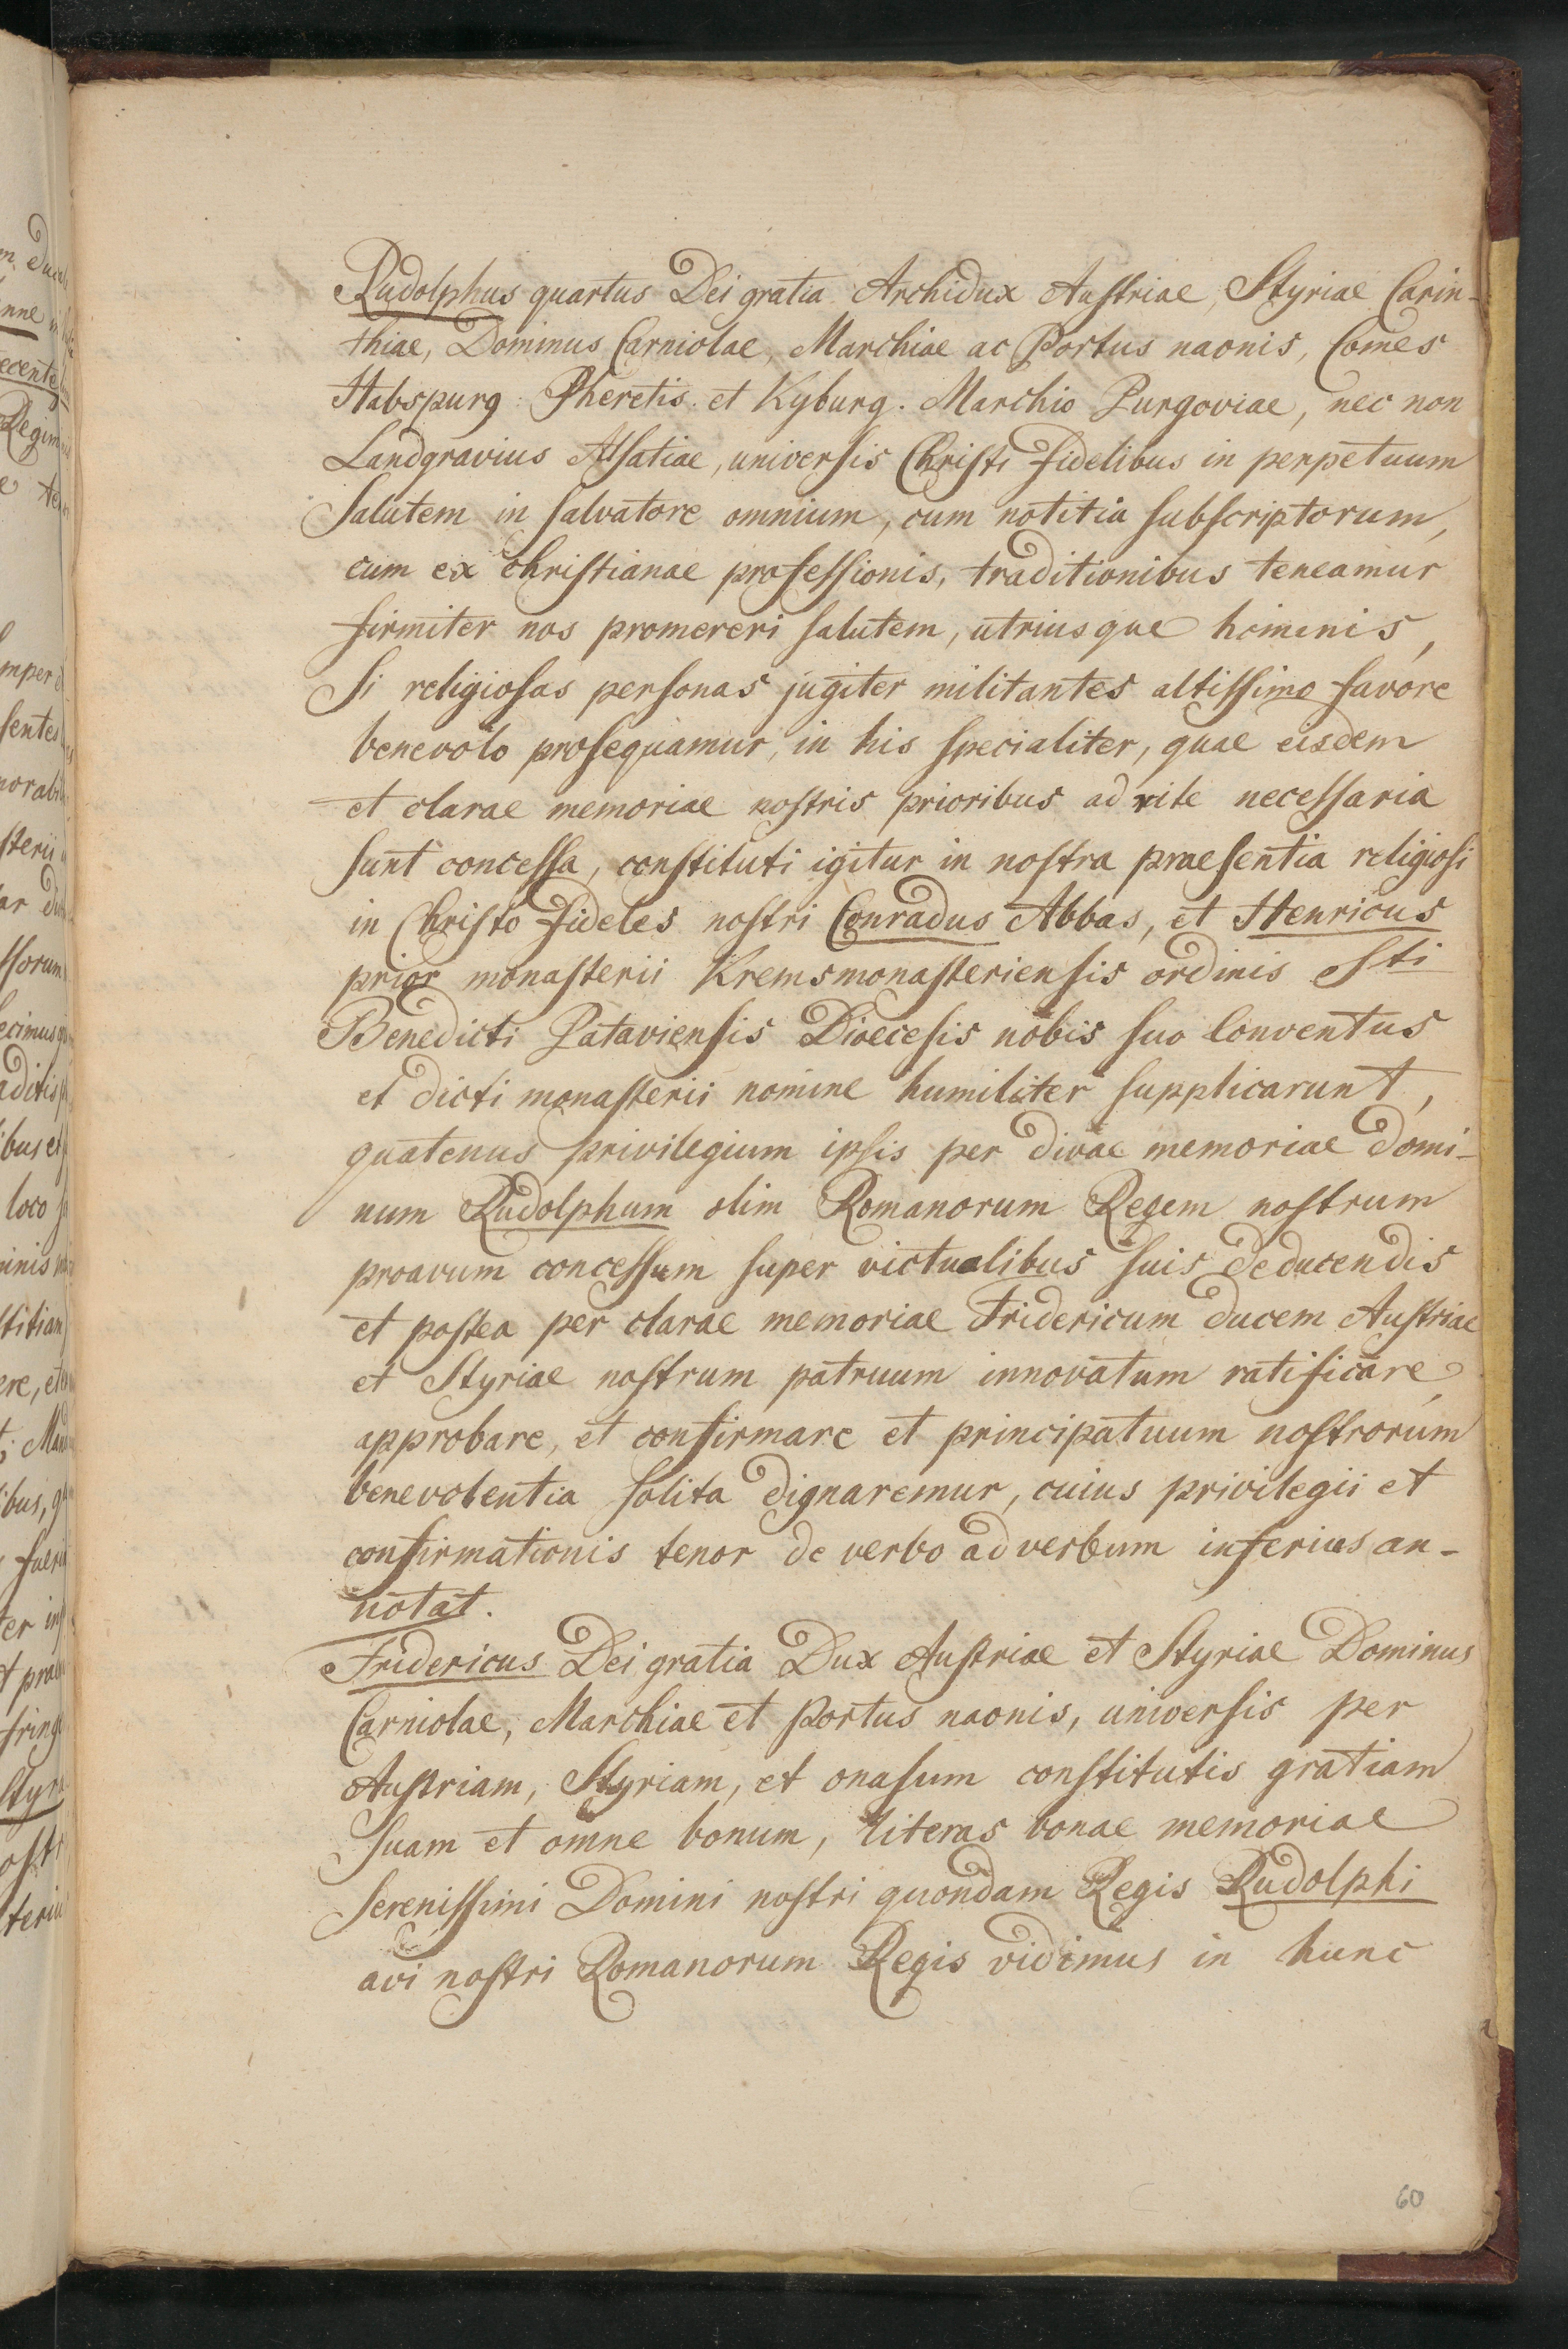 Rudolphus quartus Dei gratia Archidux Austriae, Styriae Carin-
thiae, Dominus Carniolae, Marchiae ac Portus naonis, Comes
Habspurg Pheretis et Kyburg. Marchio Purgoviae, nec non
Landgravius Alsatiae, universis Christi fidelibus in perpetuum
Salutem in salvatore omnium, cum notitia subscriptorum,
cum ex christianae professionis, traditionibus teneamur
firmiter nos promereri salutem, utriusque hominis,
Si religiosas personas jugiter militantes altissimo favore
benevolo prosequamur, in his specialiter, quae eisdem
et clarae memoriae nostris prioribus ad rite necessaria
sunt concessa, constituti igitur in nostra praesentia religiosi
in Christo fideles nostri Conradus Abbas, et Henricus
prior monasterii Kremsmonasteriensis ordinis Sti
Benedicti Pataviensis Dioecesis nobis suo Conventus
et dicti monasterii nomine humiliter supplicarunt,
quatenus privilegium ipsis per divae memoriae domi-
num Rudolphum olim Romanorum Regem nostrum
proavum concessum super victualibus suis deducendis
et postea per clarae memoriae Fridericum ducem Austriae
et Styriae nostrum patruum innovatum ratificare,
approbare, et confirmare et principatuum nostrorum
benevolentia solita dignaremur, cuius privilegii et
confirmationis tenor de verbo ad verbum inferius an-
notat.
Fridericus Dei gratia Dux Austriae et Styriae Dominus
Carniolae, Marchiae et Portus naonis, universis per
Austriam, Styriam, et onasum constitutis gratiam
suam et omne bonum, literas bonae memoriae
serenissimi Domini nostri quondam Regis Rudolphi
avi nostri Romanorum Regis vidimus in hunc
60